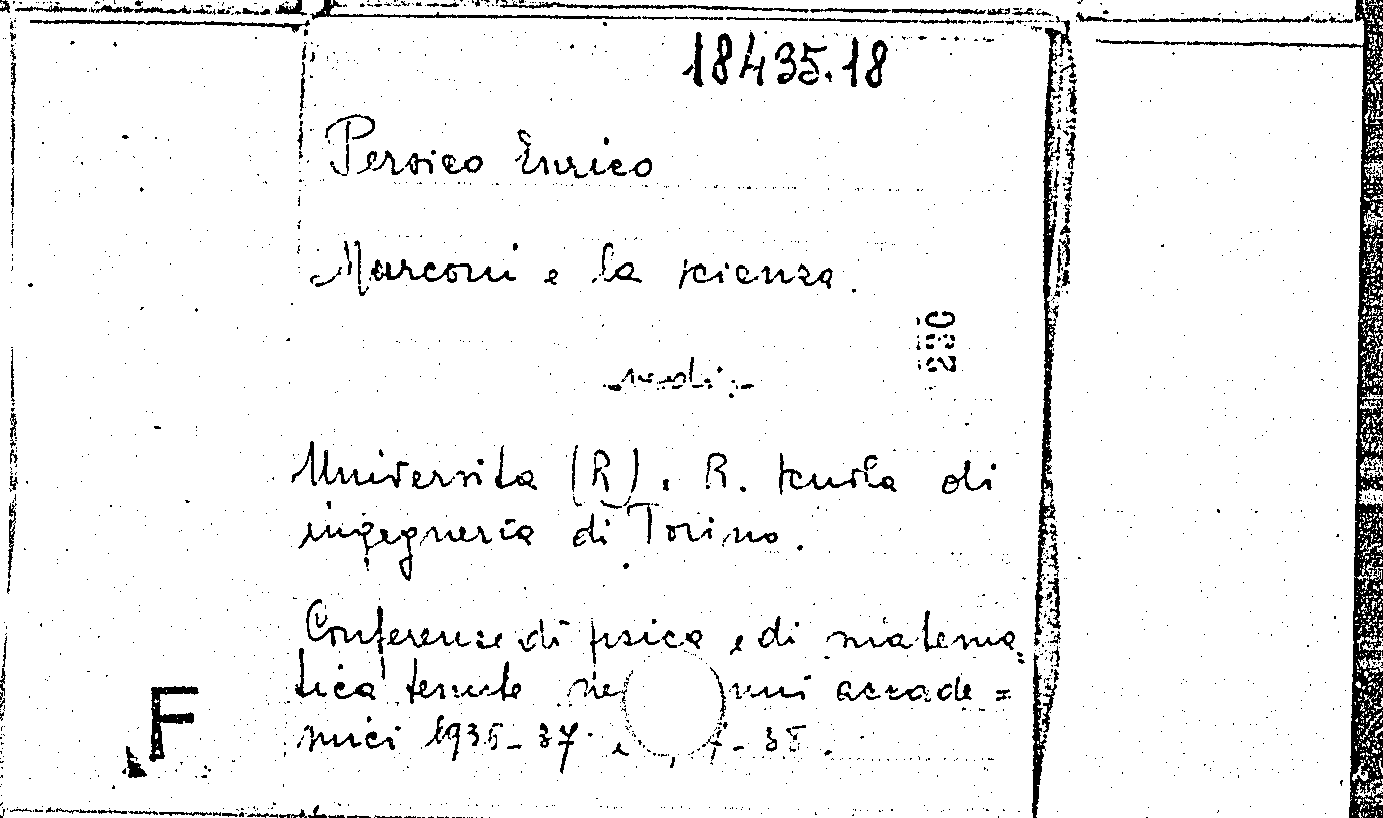 18435.18
Persico Enrico
Marconi e la scienza.
vedi:
230
Università (R). R. scuola di
ingegneria di Torino.
Conferenze di fisica e di matema
tica tenute ne nni accade=
mici 1936-37 e 7-38.
F